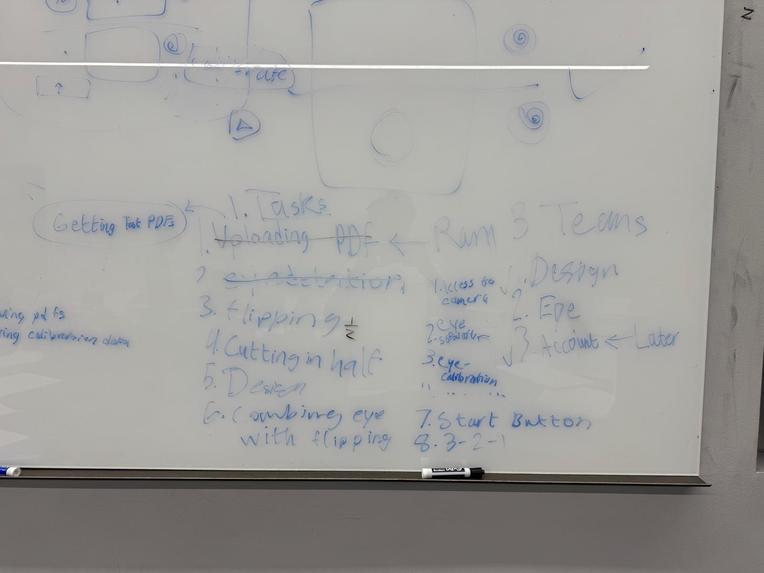 Getting Test PDFs
1. Tasks
1. Uploading PDF ← Ram
2
3. Flipping 1/2
4. Cutting in half
5. Design
6. Combining eye
with flipping
1. Access to
camera
2. eye
3. eye-
calibration
" " " "
7. Start Button
8. 3-2-1
3 Teams
1. Design
2. Eye
3. Account ← Later
pdfs
calibration data